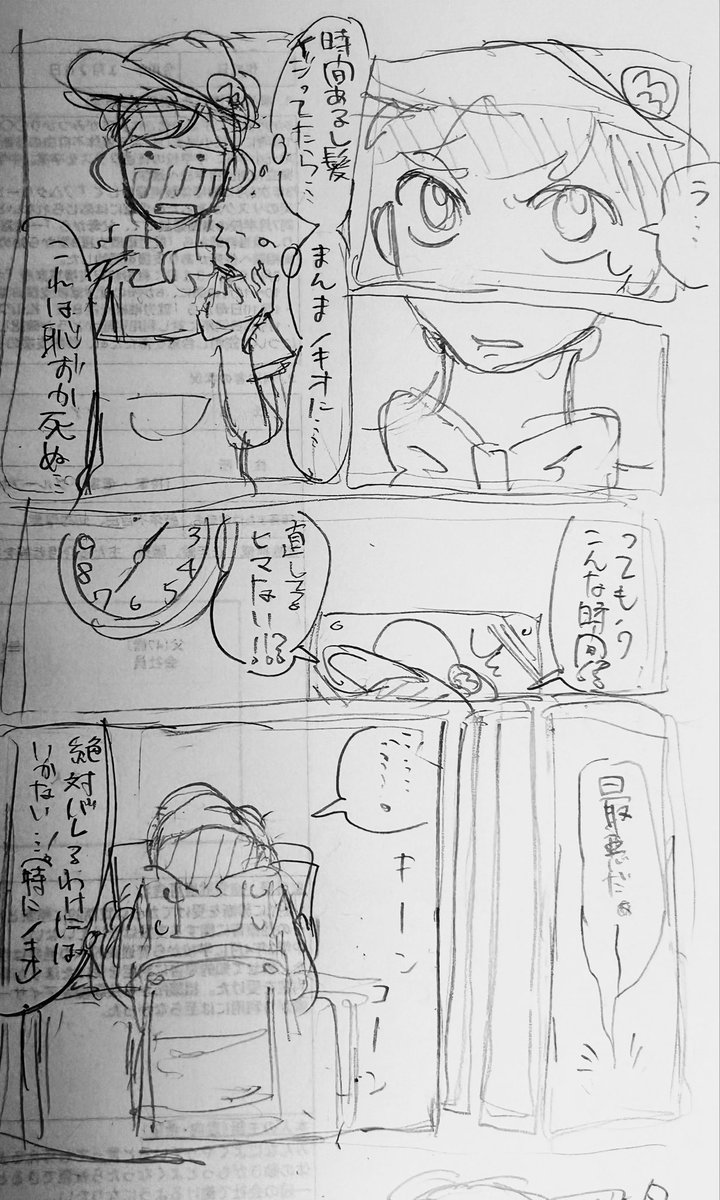 う…
時間あるし髪
まんまノキオに…
これは恥ずか死ぬ…
ってもう
こんな時間!?
直してる
ヒマない!!?
3
4
5
6
7
8
9
最悪だぁ
…………。
キーン
コーン
絶対バレるわけには
いかない…